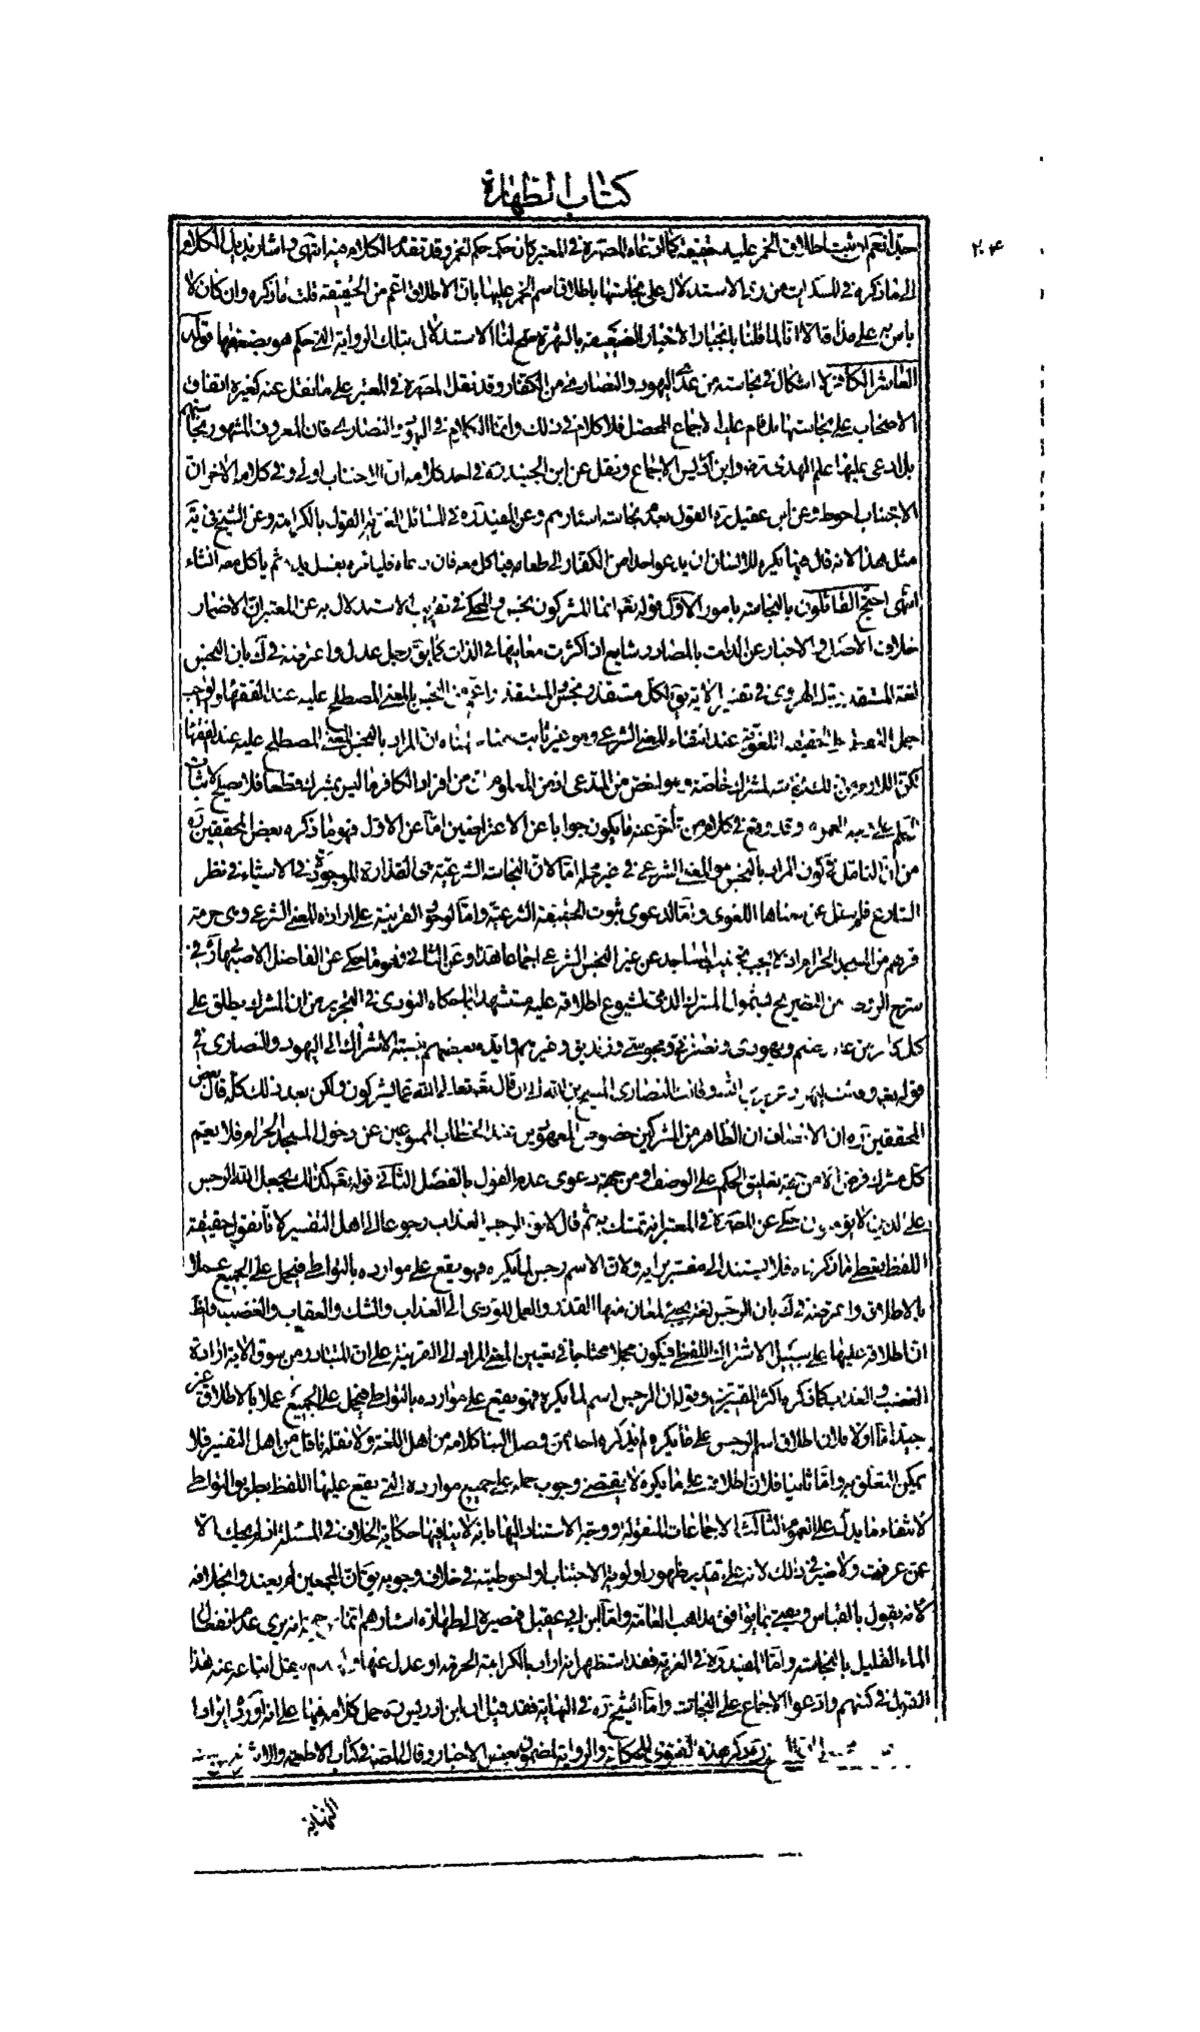 كتاب الطهارة
٢٠۴
جدا نعم ان ثبت اطلاق الخمر عليه حقيقة كما ادعاه المص ره في المعتبر كان حكمه حكم الخمر وقد تقدم الكلام فيه انتهى واشار بذيل الكلام
الى ما ذكره في المسكرات من رد الاستدلال على نجاستها باطلاق اسم الخمر عليها بان الاطلاق اعم من الحقيقة قلت ما ذكره وان كان لا
باس به على مذاقه الا انا لما قلنا بانجبار الاخبار الضعيفة بالشهرة صح لنا الاستدلال بتلك الرواية التي حكم هو بضعفها قوله
العاشر الكافر لا اشكال في نجاسته من عدا اليهود والنصارى من الكفار وقد نقل المص ره في المعتبر على ما نقل عنه كغيره اتفاق
الاصحاب على نجاستها بل قام عليه الاجماع المحصل فلا كلام في ذلك وانما الكلام في اليهود والنصارى فان المعروف المشهور نجاستهم
بل ادعى عليها علم الهدى ره وابن ادريس الاجماع ونقل عن ابن الجنيد ره في احد كلامه ان الاجتناب اولى وفي كلامه الاخر ان
الاجتناب احوط وعن ابن عقيل ره القول بعدم نجاسة اسئارهم وعن المفيد ره في المسائل الغرية القول بالكراهة وعن الشيخ في ية
مثل هذا لانه قال فيها يكره للانسان ان يدعو احدا من الكفار الى طعامه فياكل معه فان دعاه فليامره بغسل يديه ثم ياكل معه انشاء
انتهى احتج القائلون بالنجاسة بامور الاول قوله تعالى انما المشركون نجس والمحكي في تقريب الاستدلال به عن المعتبر ان الاضمار
خلاف الاصل والاخبار عن الذات بالمصادر شايع اذا كثرت معانيها في الذات كما يق رجل عدل واعترضه في ك بان النجس
لغة المستقذر قال الهروي في تفسير الاية يق لكل مستقذر نجس والمستقذر اعم من النجس بالمعنى المصطلح عليه عند الفقهاء والواجب
حمل اللفظ على الحقيقة اللغوية عند انتفاء المعنى الشرعي وهو غير ثابت هنا سلمناه ان المراد بالنجس المعنى المصطلح عليه عند الفقهاء
لكن اللازم من ذلك نجاسة المشرك خاصة وهو اخص من المدعى اذ من المعلوم ان من افراد الكافر ما ليس بمشرك قطعا فلا يصلح لاثبات
الحكم على وجه العموم وقد وقع في كلام من تاخر عنه ما يكون جوابا عن الاعتراضين اما عن الاول فهو ما ذكره بعض المحققين ره
من ان التامل في كون المراد بالنجس هو المعنى الشرعي في غير محله اما لان النجاسة الشرعية هي القذارة الموجودة في الاشياء في نظر
الشارع فلم ينقل عن معناها اللغوي واما لدعوى ثبوت الحقيقة الشرعية واما لوجود القرينة على ارادة المعنى الشرعي وهي حرمة
قربهم من المسجد الحرام اذ لا يجب تجنيب المساجد عن غير النجس الشرعي اجماعا هذا وعن الثاني فهو ما حكي عن الفاضل الاصبهاني في
شرح الروضة من التصريح لشمول المشرك الذمي لشيوع اطلاقه عليه مستشهدا بما حكاه النووي في التحرير من ان المشرك يطلق على
كل كافر من عابد صنم ويهودي ونصراني ومجوسي وزنديق وغيرهم وايده بعضهم بنسبة الاشراك الى اليهود والنصارى في
قوله تعالى وقالت اليهود عزير ابن الله وقالت النصارى المسيح بن الله الى ان قال تعالى الله عما يشركون ولكن بعد ذلك كله قال بعض
المحققين ره ان الانصاف ان الظاهر من المشركين خصوص المعهودين عند الخطاب الممنوعين عن دخول المسجد الحرام فلا يعم
كل مشرك فرضا الا من جهة تعليق الحكم على الوصف او من جهة دعوى عدم القول بالفصل الثاني قوله تعالى كذلك يجعل الله الرجس
على الذين لا يؤمنون حكي عن المص ره في المعتبر انه تمسك به ثم قال لا يق الرجس العذاب رجوعا الى اهل التفسير لانا نقول حقيقة
اللفظ يعطي ما ذكرناه فلا يستند الى مفسر برايه ولان الاسم رجس لما يكره فهو يقع على موارده بالتواطي فيحمل على الجميع عملا
بالاطلاق واعترضه في ك بان الرجس لغة يجيء لمعان منها القذر والعمل المؤدي الى العذاب والشك والعقاب والغضب والظ
ان اطلاقه عليها على سبيل الاشتراك اللفظي فيكون مجملا محتاجا في تعيين المعنى المراد الى القرينة على ان المتبادر من سوق الاية ارادة
الغضب والعذاب كما ذكره اكثر المفسرين وقوله ان الرجس اسم لما يكره فهو يقع على موارده بالتواطي فيحمل على الجميع عملا بالاطلاق غير
جيد اما اولا فلان اطلاق اسم الرجس على ما يكره لم يذكره احد ممن وصل الينا كلامه من اهل اللغة ولا نقله ناقل من اهل التفسير فلا
يمكن التعلق به واما ثانيا فلان اطلاقه على ما يكره لا يقتضي وجوب حمله على جميع موارده التي يقع عليها اللفظ بطريق التواطي
لانتفاء ما يدل على العموم الثالث الاجماعات المنقولة ووجه الاستناد اليها بانه لا ينافيها حكاية الخلاف في المسئلة اذ لم يحك الا
عمن عرفت ولا ضير في ذلك لانه على تقدير ظهور اولوية الاجتناب او احوطيته في خلاف وجوبه يق ان المجمعين لم يعتدوا بخلافه
لانه يقول بالقياس ويفتي بما يوافق مذاهب العامة واما ابن ابي عقيل فمصيره الى طهارة اسئارهم انما هو من جهة انه يرى عدم انفعال
الماء القليل بالنجاسة واما المفيد ره في الغرية فقد استظهر انه اراد بالكراهة الحرمة او عدل عنها ولهذا لم ينقل اتباعه عنه هذا
القول في كتبهم وادعوا الاجماع على النجاسة واما الشيخ ره في النهاية فقد قيل ان ابن ادريس ره حمل كلامه فيها على انه اورده ايرادا
ذكر هذه الفتوى للحكاية والرواية لمضمون بعض الاخبار وقال المص في كتاب الاطعمة والاشربة
النهاية